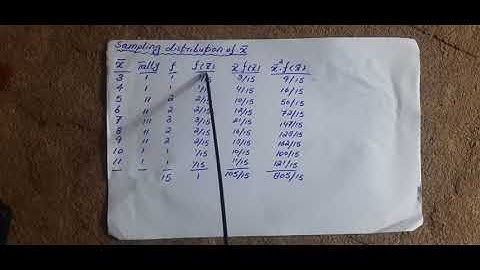 Sampling distribution of x̄
x̄ Tally f f(x̄) x̄ f(x̄) x̄² f(x̄)
3 1 1 3/15 9/15
4 1 1 1/15 4/15 16/15
5 11 2 2/15 10/15 50/15
6 11 2 2/15 12/15 72/15
7 111 3 3/15 21/15 147/15
8 11 2 2/15 16/15 128/15
9 11 2 2/15 18/15 162/15
10 1 1 1/15 10/15 100/15
11 1 1 1/15 11/15 121/15
15 1 105/15 805/15